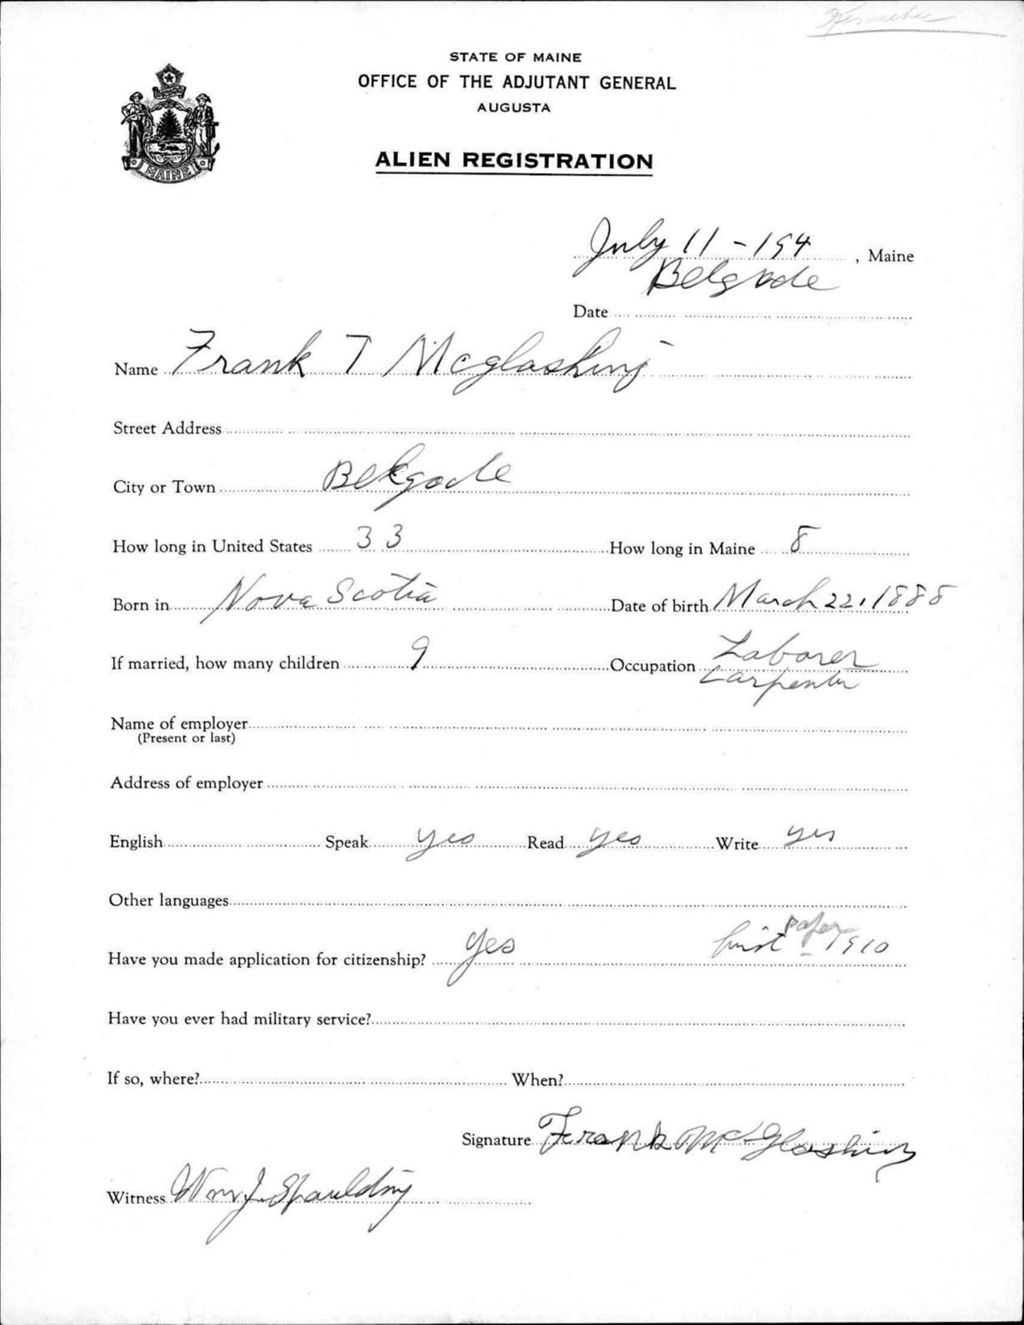 Kennebec
STATE OF MAINE
OFFICE OF THE ADJUTANT GENERAL
AUGUSTA
ALIEN REGISTRATION
MAINE
July 11 - 194 , Maine
Belgrade
Date
Name Frank T Mcglashing
Street Address
City or Town Belgrade
How long in United States 33 How long in Maine 8
Born in Nova Scotia Date of birth March 22, 1888
If married, how many children 9 Occupation Laborer
Carpenter
Name of employer
(Present or last)
Address of employer
English Speak yes Read yes Write yes
Other languages
Have you made application for citizenship? yes first paper 1910
Have you ever had military service?
If so, where? When?
Signature Frank McGlashing
Witness Wm J. Spaulding